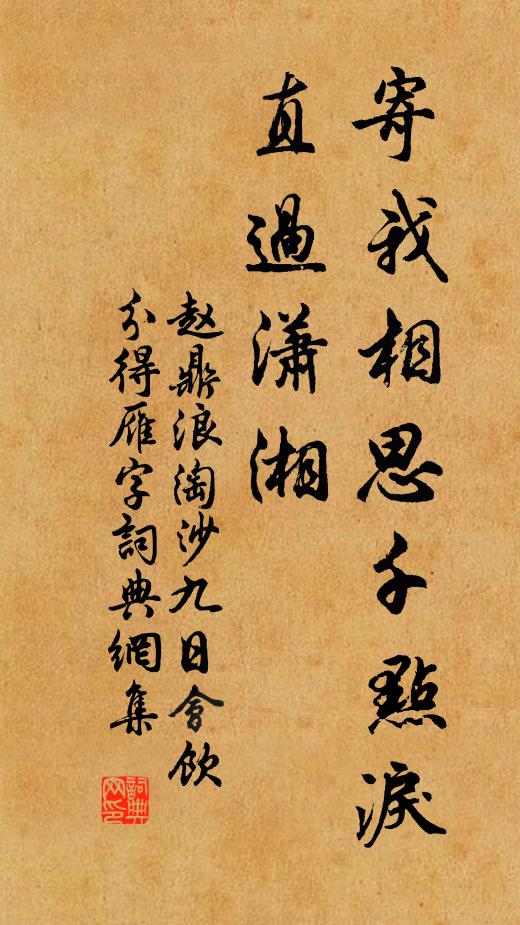 寄我相思千點淚
直過瀟湘
赵鼎浪淘沙九日會飲
分得雁字詞典網集
詞典
网印